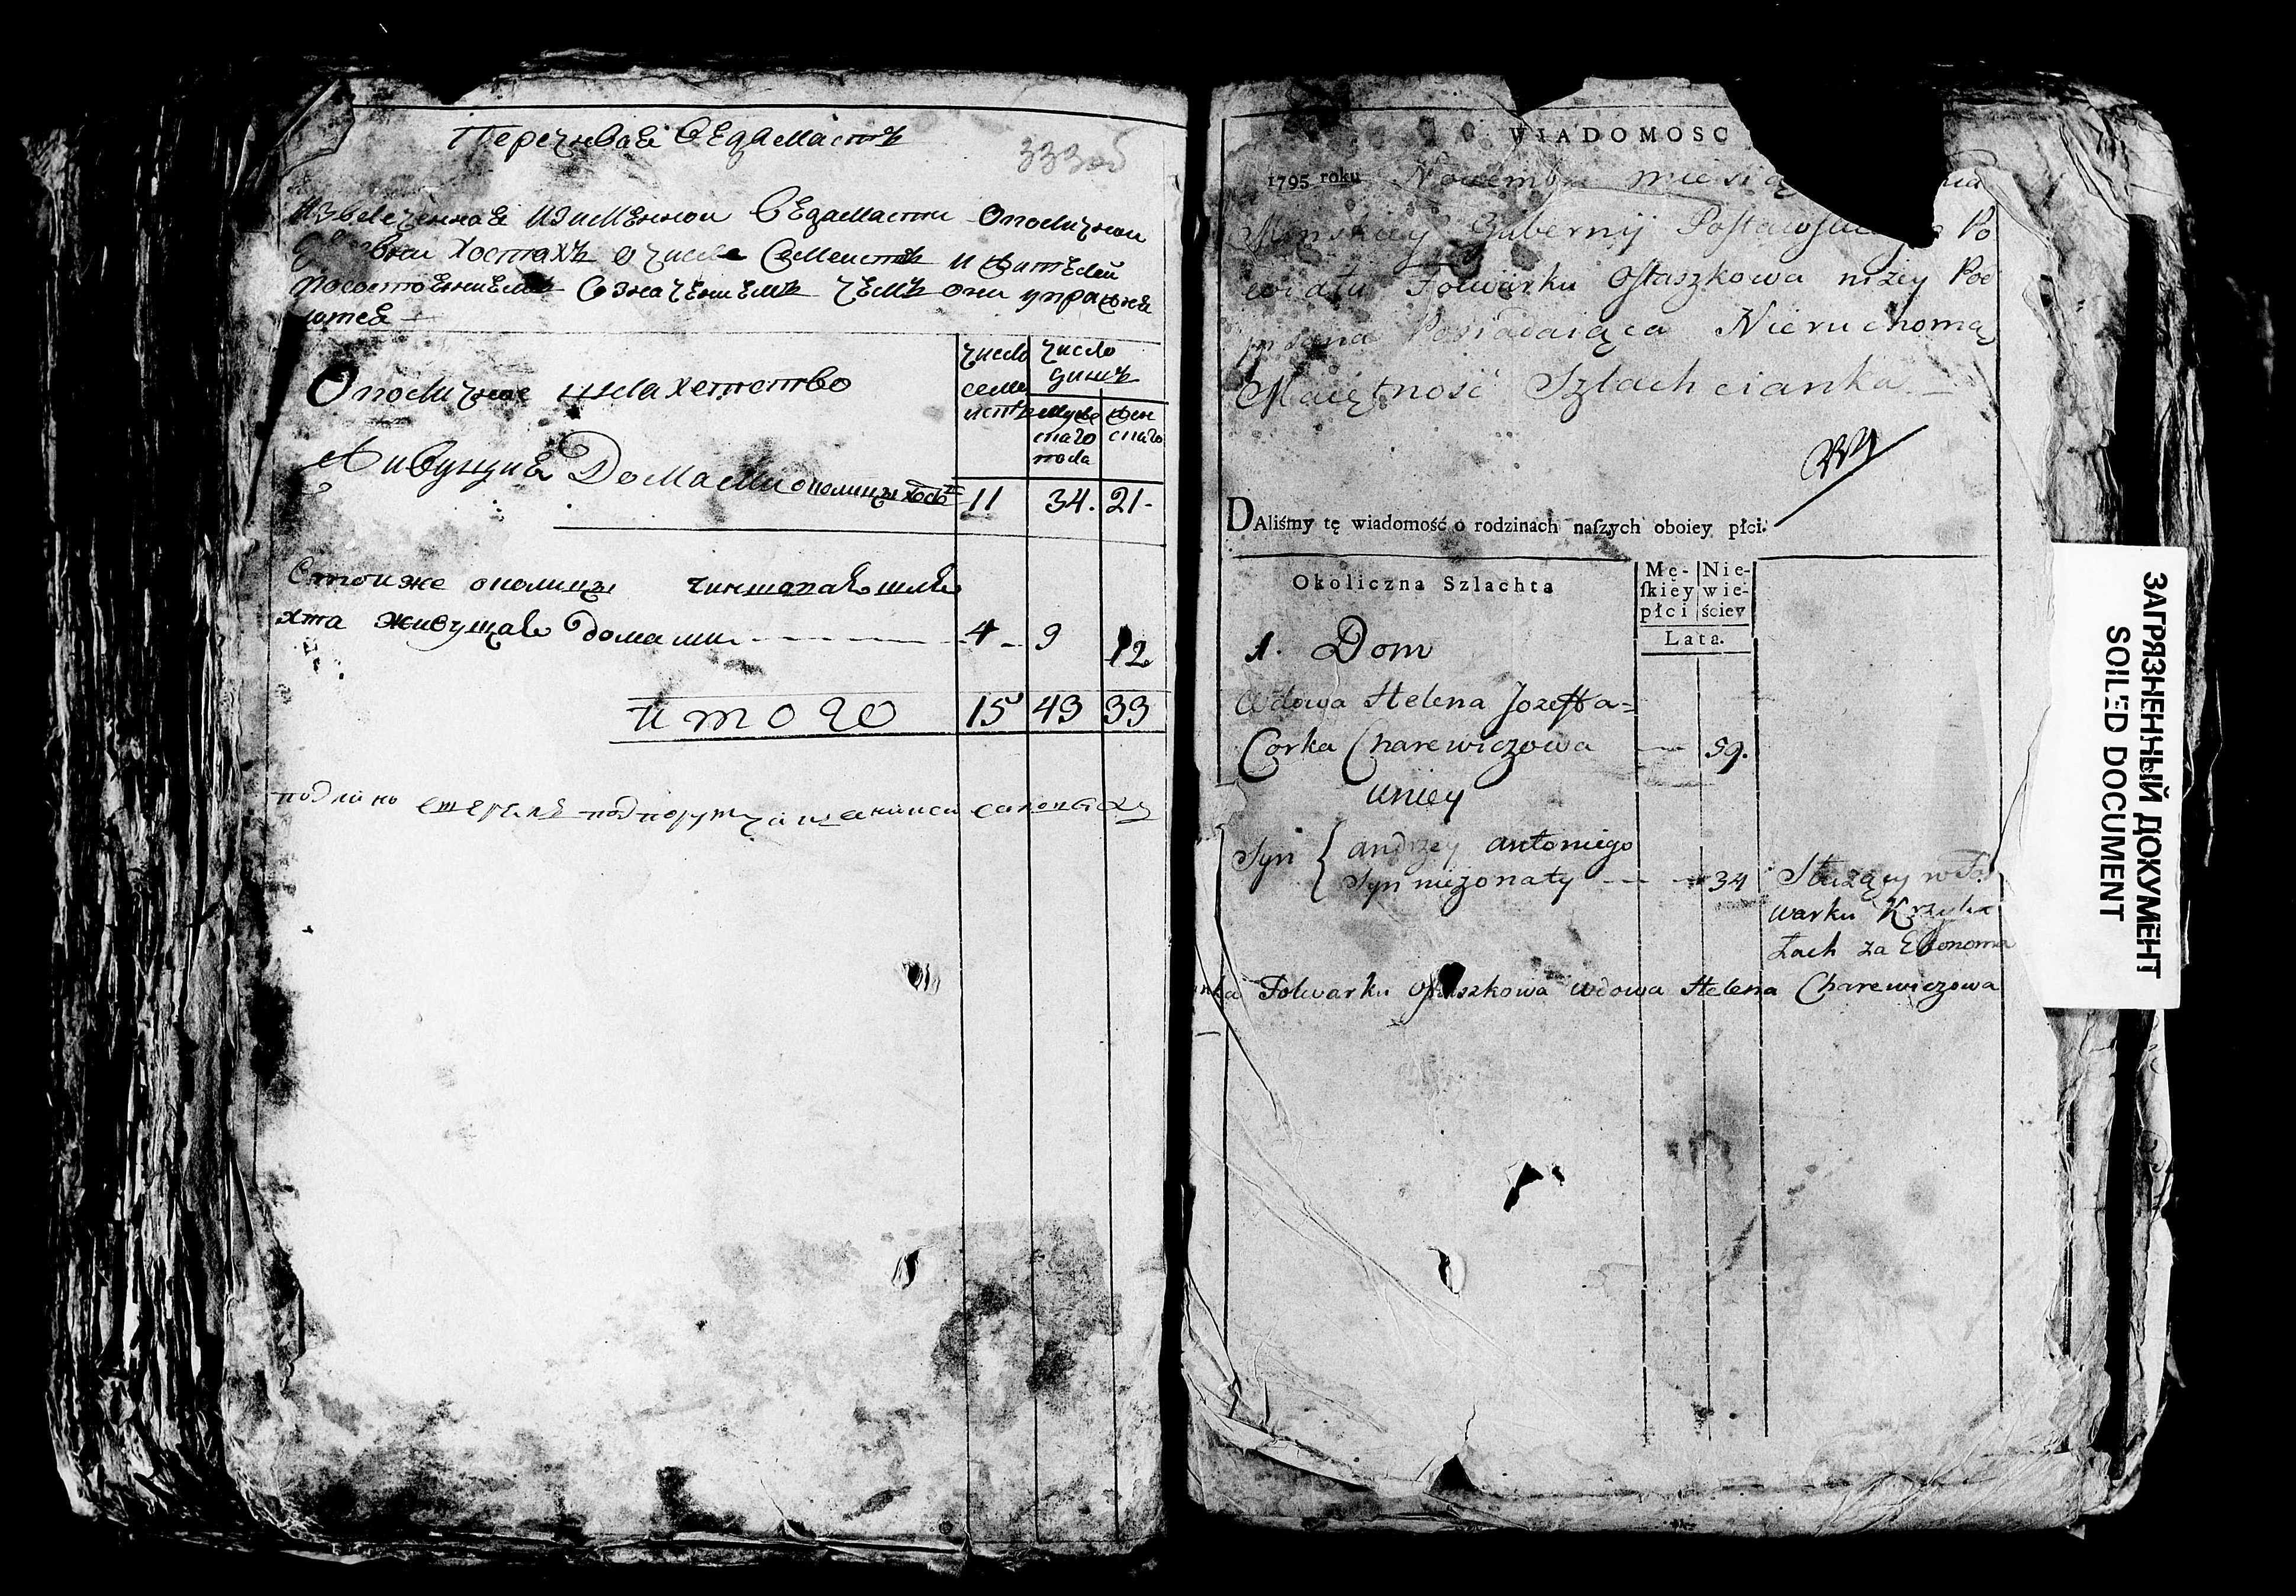 Перечневая ведамасть
333об
Извлеченная изименнои ведамасти Околичнои
хостахъ о числе Семеистъ и жителей
посостоениемъ Созначениемъ чемъ они упражня
ются
Околичное шляхетство
число
семе
истъ
число
душъ
мужс
скаго
пола
жен
скаго
Живущия Домами околицы
11 34. 21.
Стоиже околицы чиншовая шля
хта живущая домами 4 9 12
итого 15 43 33
WIADOMOSC
1795 roku Nowembr miesią
Minskiey Gubernij Postawskiego Po
wiatu Folwarku Ostaszkowa niżey Pod
pisana Posiadaiąca Nieruchomą
Maiętność Szlachcianka
DAliśmy tę wiadomość o rodzinach naſzych oboiey płci.
Okoliczna Szlachta
Mę-
ſkiey
płci
Nie-
wie-
ściey
Lata.
1. Dom
Wdowa Helena Jozeffa=
Corka Charewiczowa 59.
Uniey
Syn { Andrzey Antoniego
Syn nieżonaty 34 Służący w Fo
warku Krzywi
łach za Ekonoma
Folwarku Ostaszkowa Wdowa Helena Charewiczowa
ЗАГРЯЗНЕННЫЙ ДОКУМЕНТ
SOILED DOCUMENT